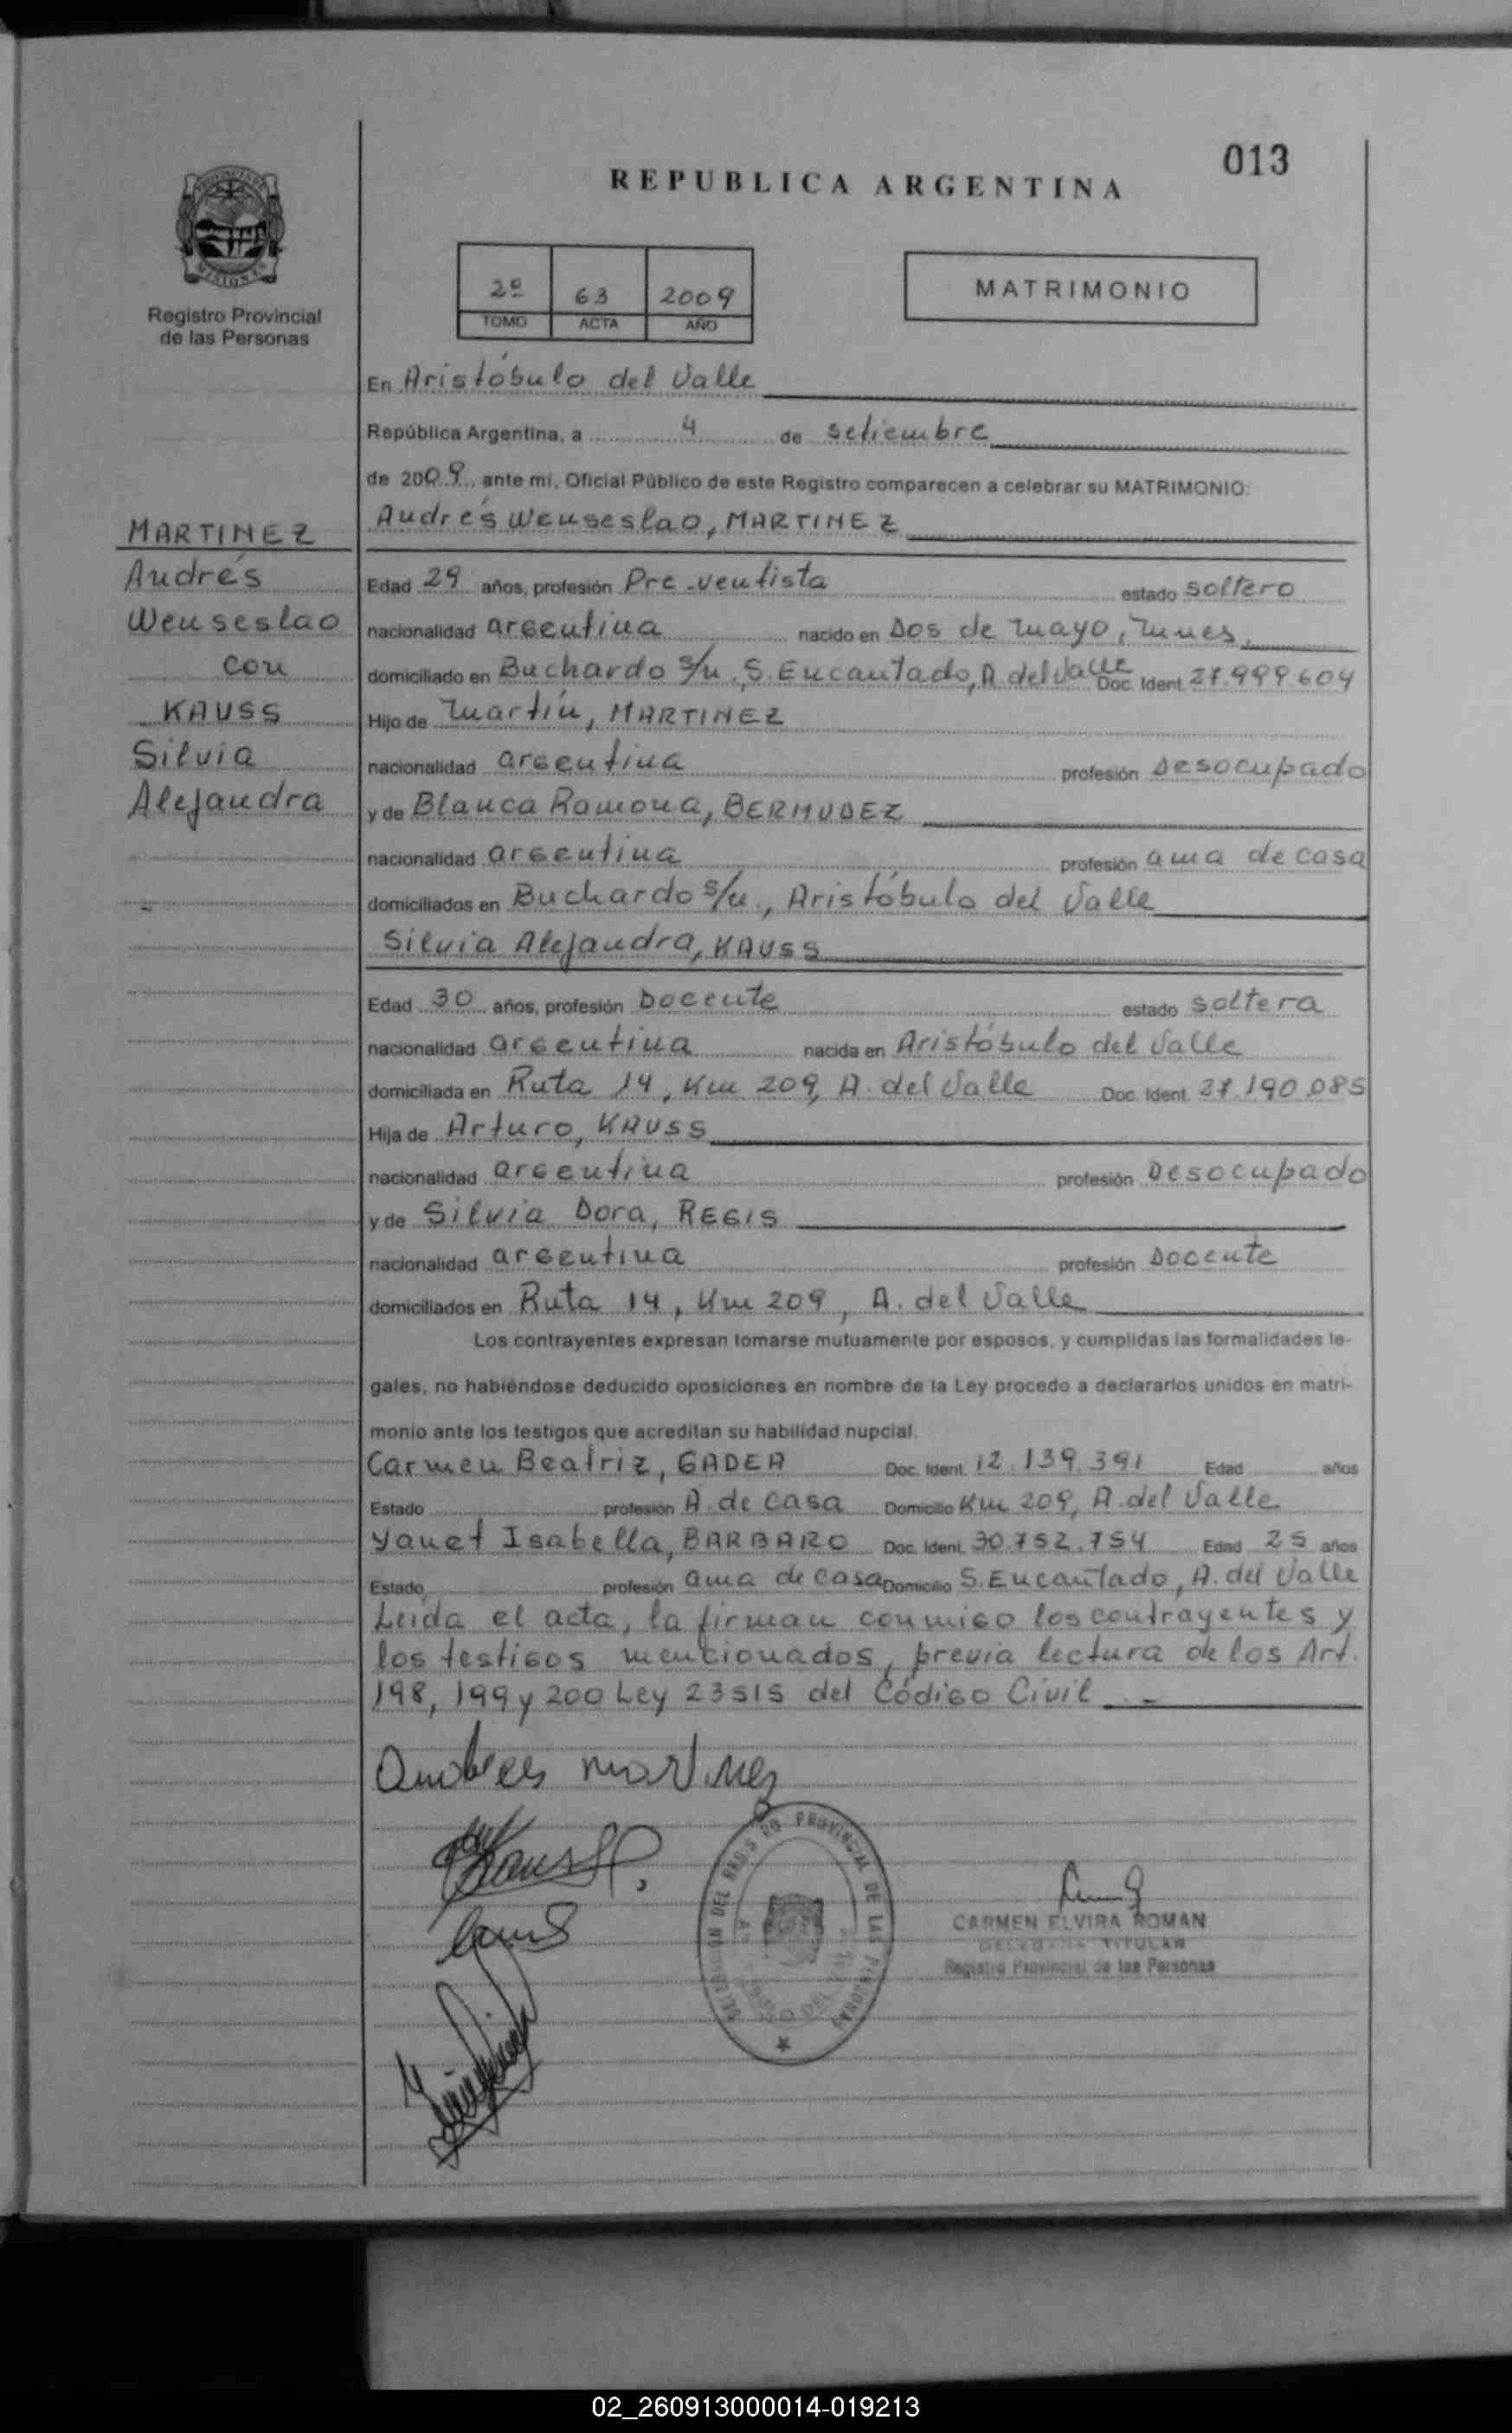 013
REPUBLICA ARGENTINA
PROVINCIA DE
MISIONES
Registro Provincial
de las Personas
2º 63 2009
TOMO ACTA AÑO
MATRIMONIO
En Aristóbulo del Valle
República Argentina, a 4 de setiembre
de 2009 ante mí, Oficial Público de este Registro comparecen a celebrar su MATRIMONIO:
Andrés Wenseslao, MARTINEZ
MARTINEZ
Andrés
Wenseslao
con
KAUSS
Silvia
Alejandra
Edad 29 años, profesión Pre-ventista estado soltero
nacionalidad argentina nacido en Dos de Mayo, Mnes,
domiciliado en Buchardo s/n, S. Encantado, A. del Valle Doc. Ident. 27.999.604
Hijo de Martín, MARTINEZ
nacionalidad argentina profesión Desocupado
y de Blanca Ramona, BERMUDEZ
nacionalidad argentina profesión ama de casa
domiciliados en Buchardo s/n, Aristóbulo del Valle
Silvia Alejandra, KAUSS
Edad 30 años, profesión Docente estado soltera
nacionalidad argentina nacida en Aristóbulo del Valle
domiciliada en Ruta 14, Km 209, A. del Valle Doc. Ident. 27.190.085
Hija de Arturo, KAUSS
nacionalidad argentina profesión Desocupado
y de Silvia Dora, REGIS
nacionalidad argentina profesión Docente
domiciliados en Ruta 14, Km 209, A. del Valle
Los contrayentes expresan tomarse mutuamente por esposos, y cumplidas las formalidades le-
gales, no habiéndose deducido oposiciones en nombre de la Ley procedo a declararlos unidos en matri-
monio ante los testigos que acreditan su habilidad nupcial.
Carmen Beatriz, GADEA Doc. Ident. 12.139.391 Edad años
Estado profesión A. de casa Domicilio Km 209, A. del Valle
Yanet Isabella, BARBARO Doc. Ident. 30.752.754 Edad 25 años
Estado profesión ama de casa Domicilio S. Encantado, A. del Valle
Leída el acta, la firman conmigo los contrayentes y
los testigos mencionados, previa lectura de los Art.
198, 199 y 200 Ley 23515 del Código Civil
Andres Martinez
PROVINCIAL DE LAS PERSONAS
CARMEN ELVIRA ROMAN
DELEGADA TITULAR
Registro Provincial de las Personas
02_260913000014-019213